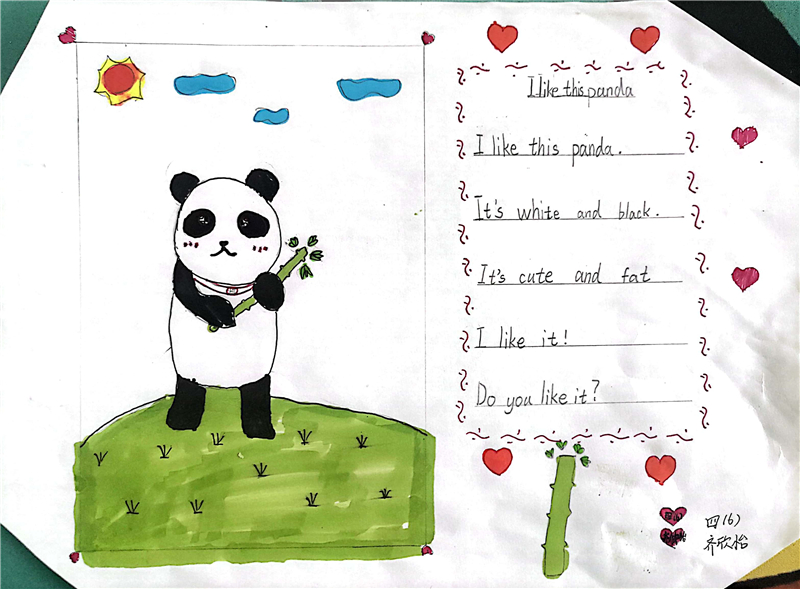 I like this panda
I like this panda.
It's white and black.
It's cute and fat
I like it!
Do you like it?
四(6)
齐欣怡